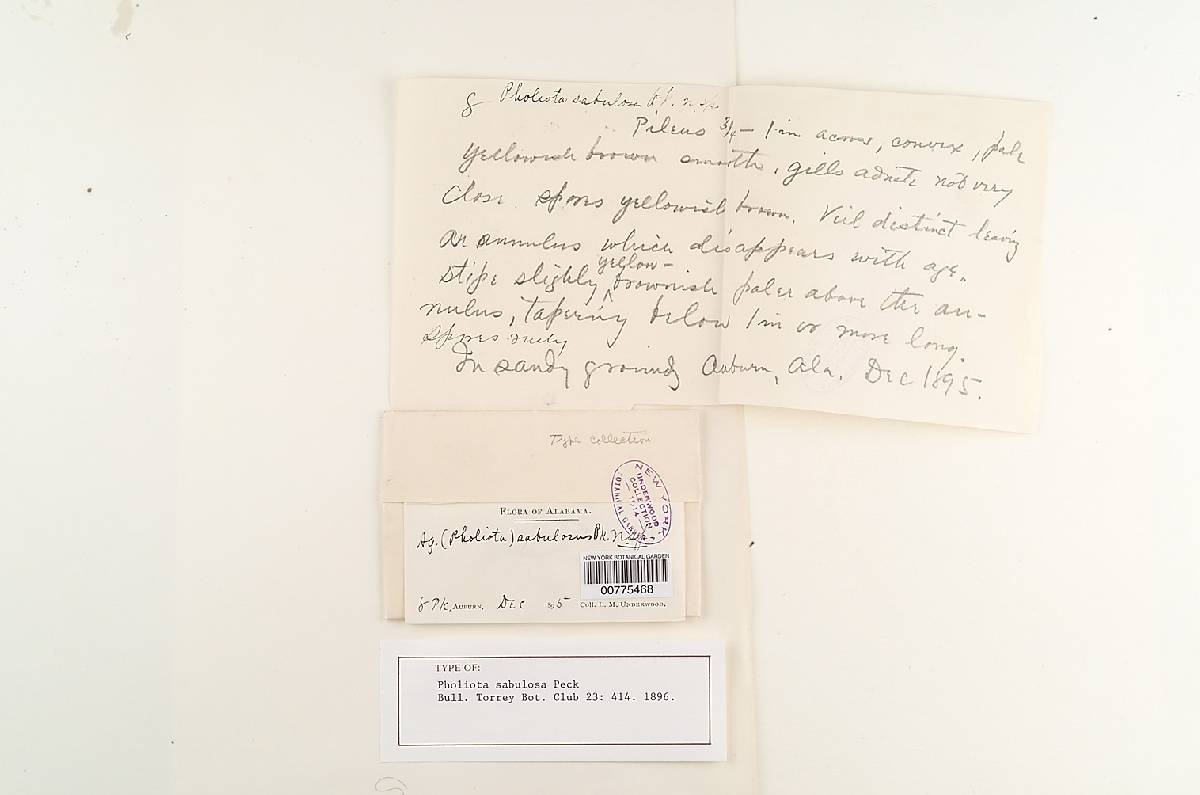 8 Pholiota sabulosa Pk. n. sp.
Pileus 3/4 – 1 in across, convex, pale
yellowish brown smooth, gills adnate not very
close spores yellowish brown. Veil distinct leaving
an annulus which disappears with age.
yellow-
Stipe slightly ^ brownish paler above the an-
nulus, tapering below 1 in or more long.
spores
In sandy grounds Auburn, Ala. Dec 1895.
Type collection
NEW YORK
BOTANICAL GARDEN
UNDERWOOD
COLLECTION
FLORA OF ALABAMA.
Ag. (Pholiota) sabulosus Pk. n
NEW YORK BOTANICAL GARDEN
00775468
8 Pk, AUBURN, Dec 895 Coll. L. M. UNDERWOOD.
TYPE OF:
Pholiota sabulosa Peck
Bull. Torrey Bot. Club 23: 414. 1896.